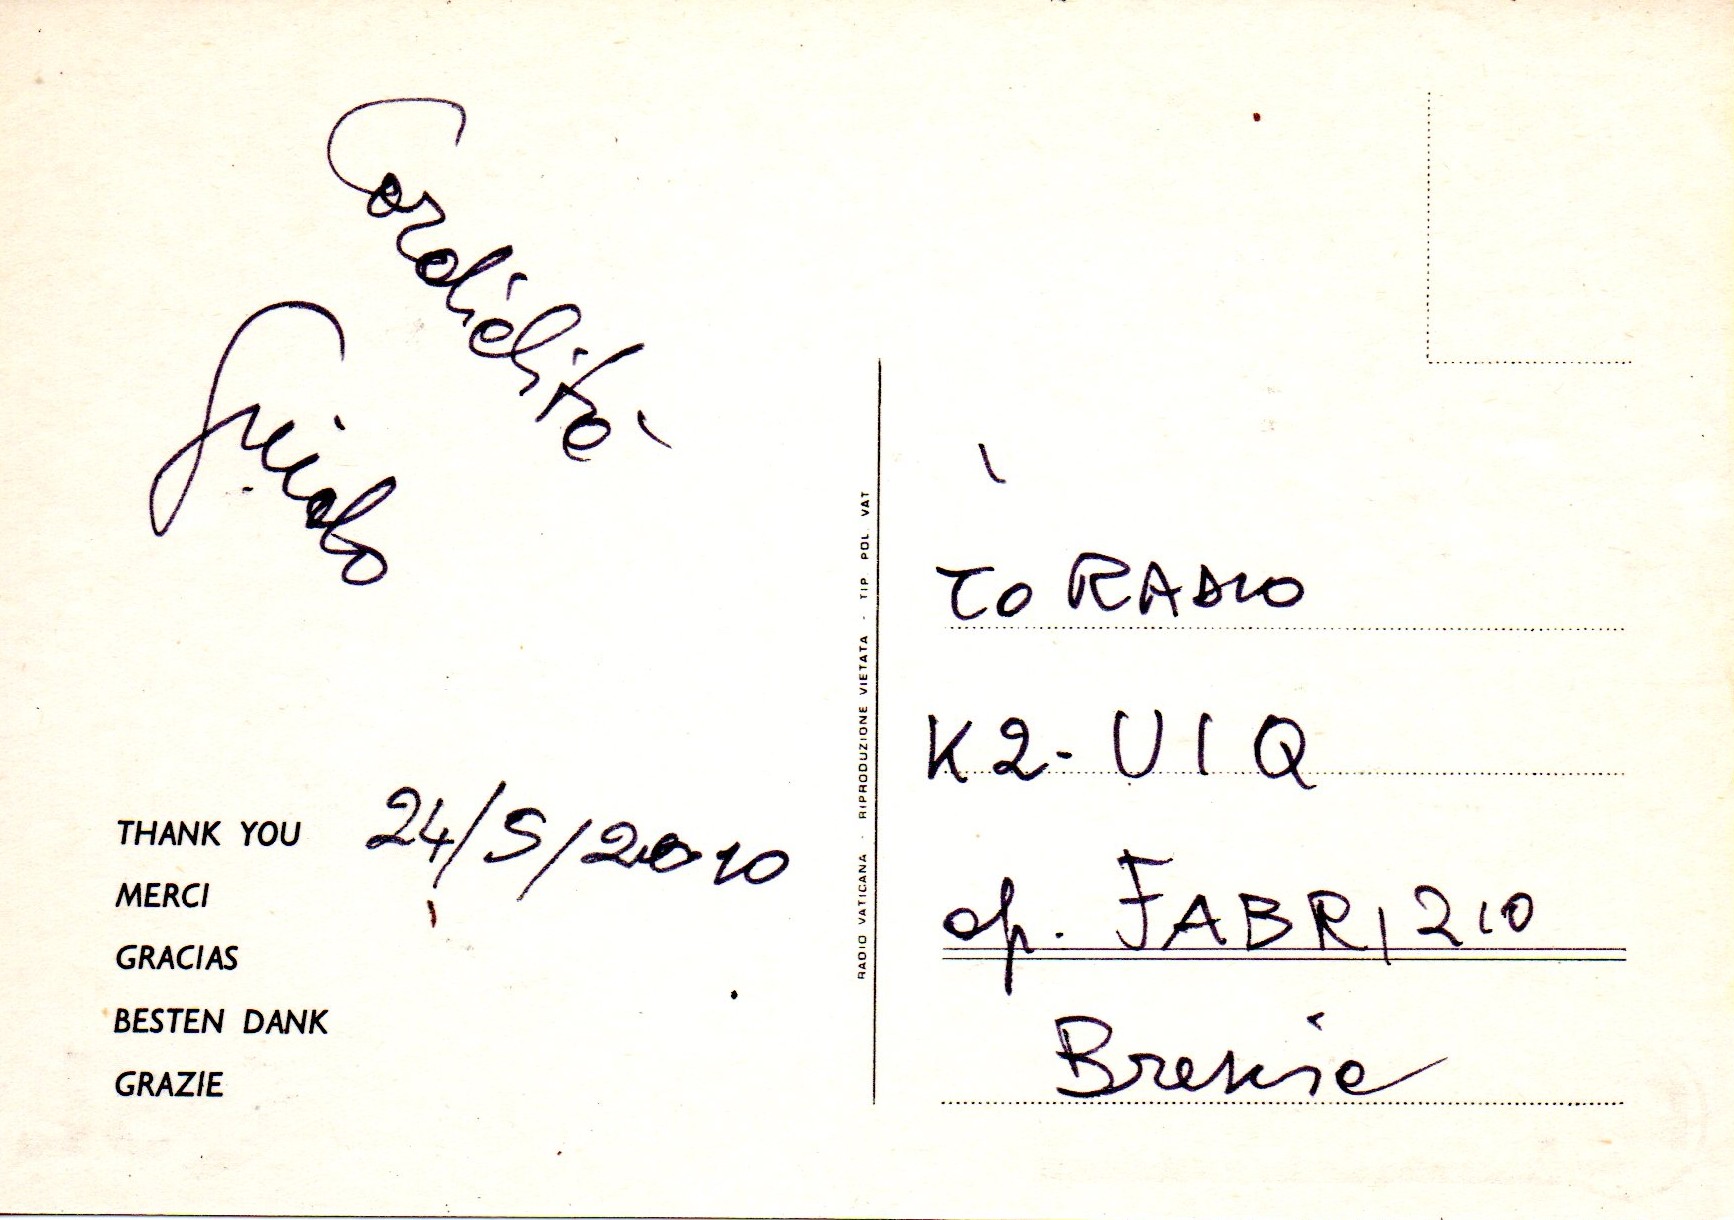 Cordialità
THANK YOU
24/5/2010
MERCI
GRACIAS
BESTEN DANK
GRAZIE
RADIO VATICANA - RIPRODUZIONE VIETATA - TIP POL VAT
TO RADIO
K2-UIQ
op. FABRIZIO
Brescia